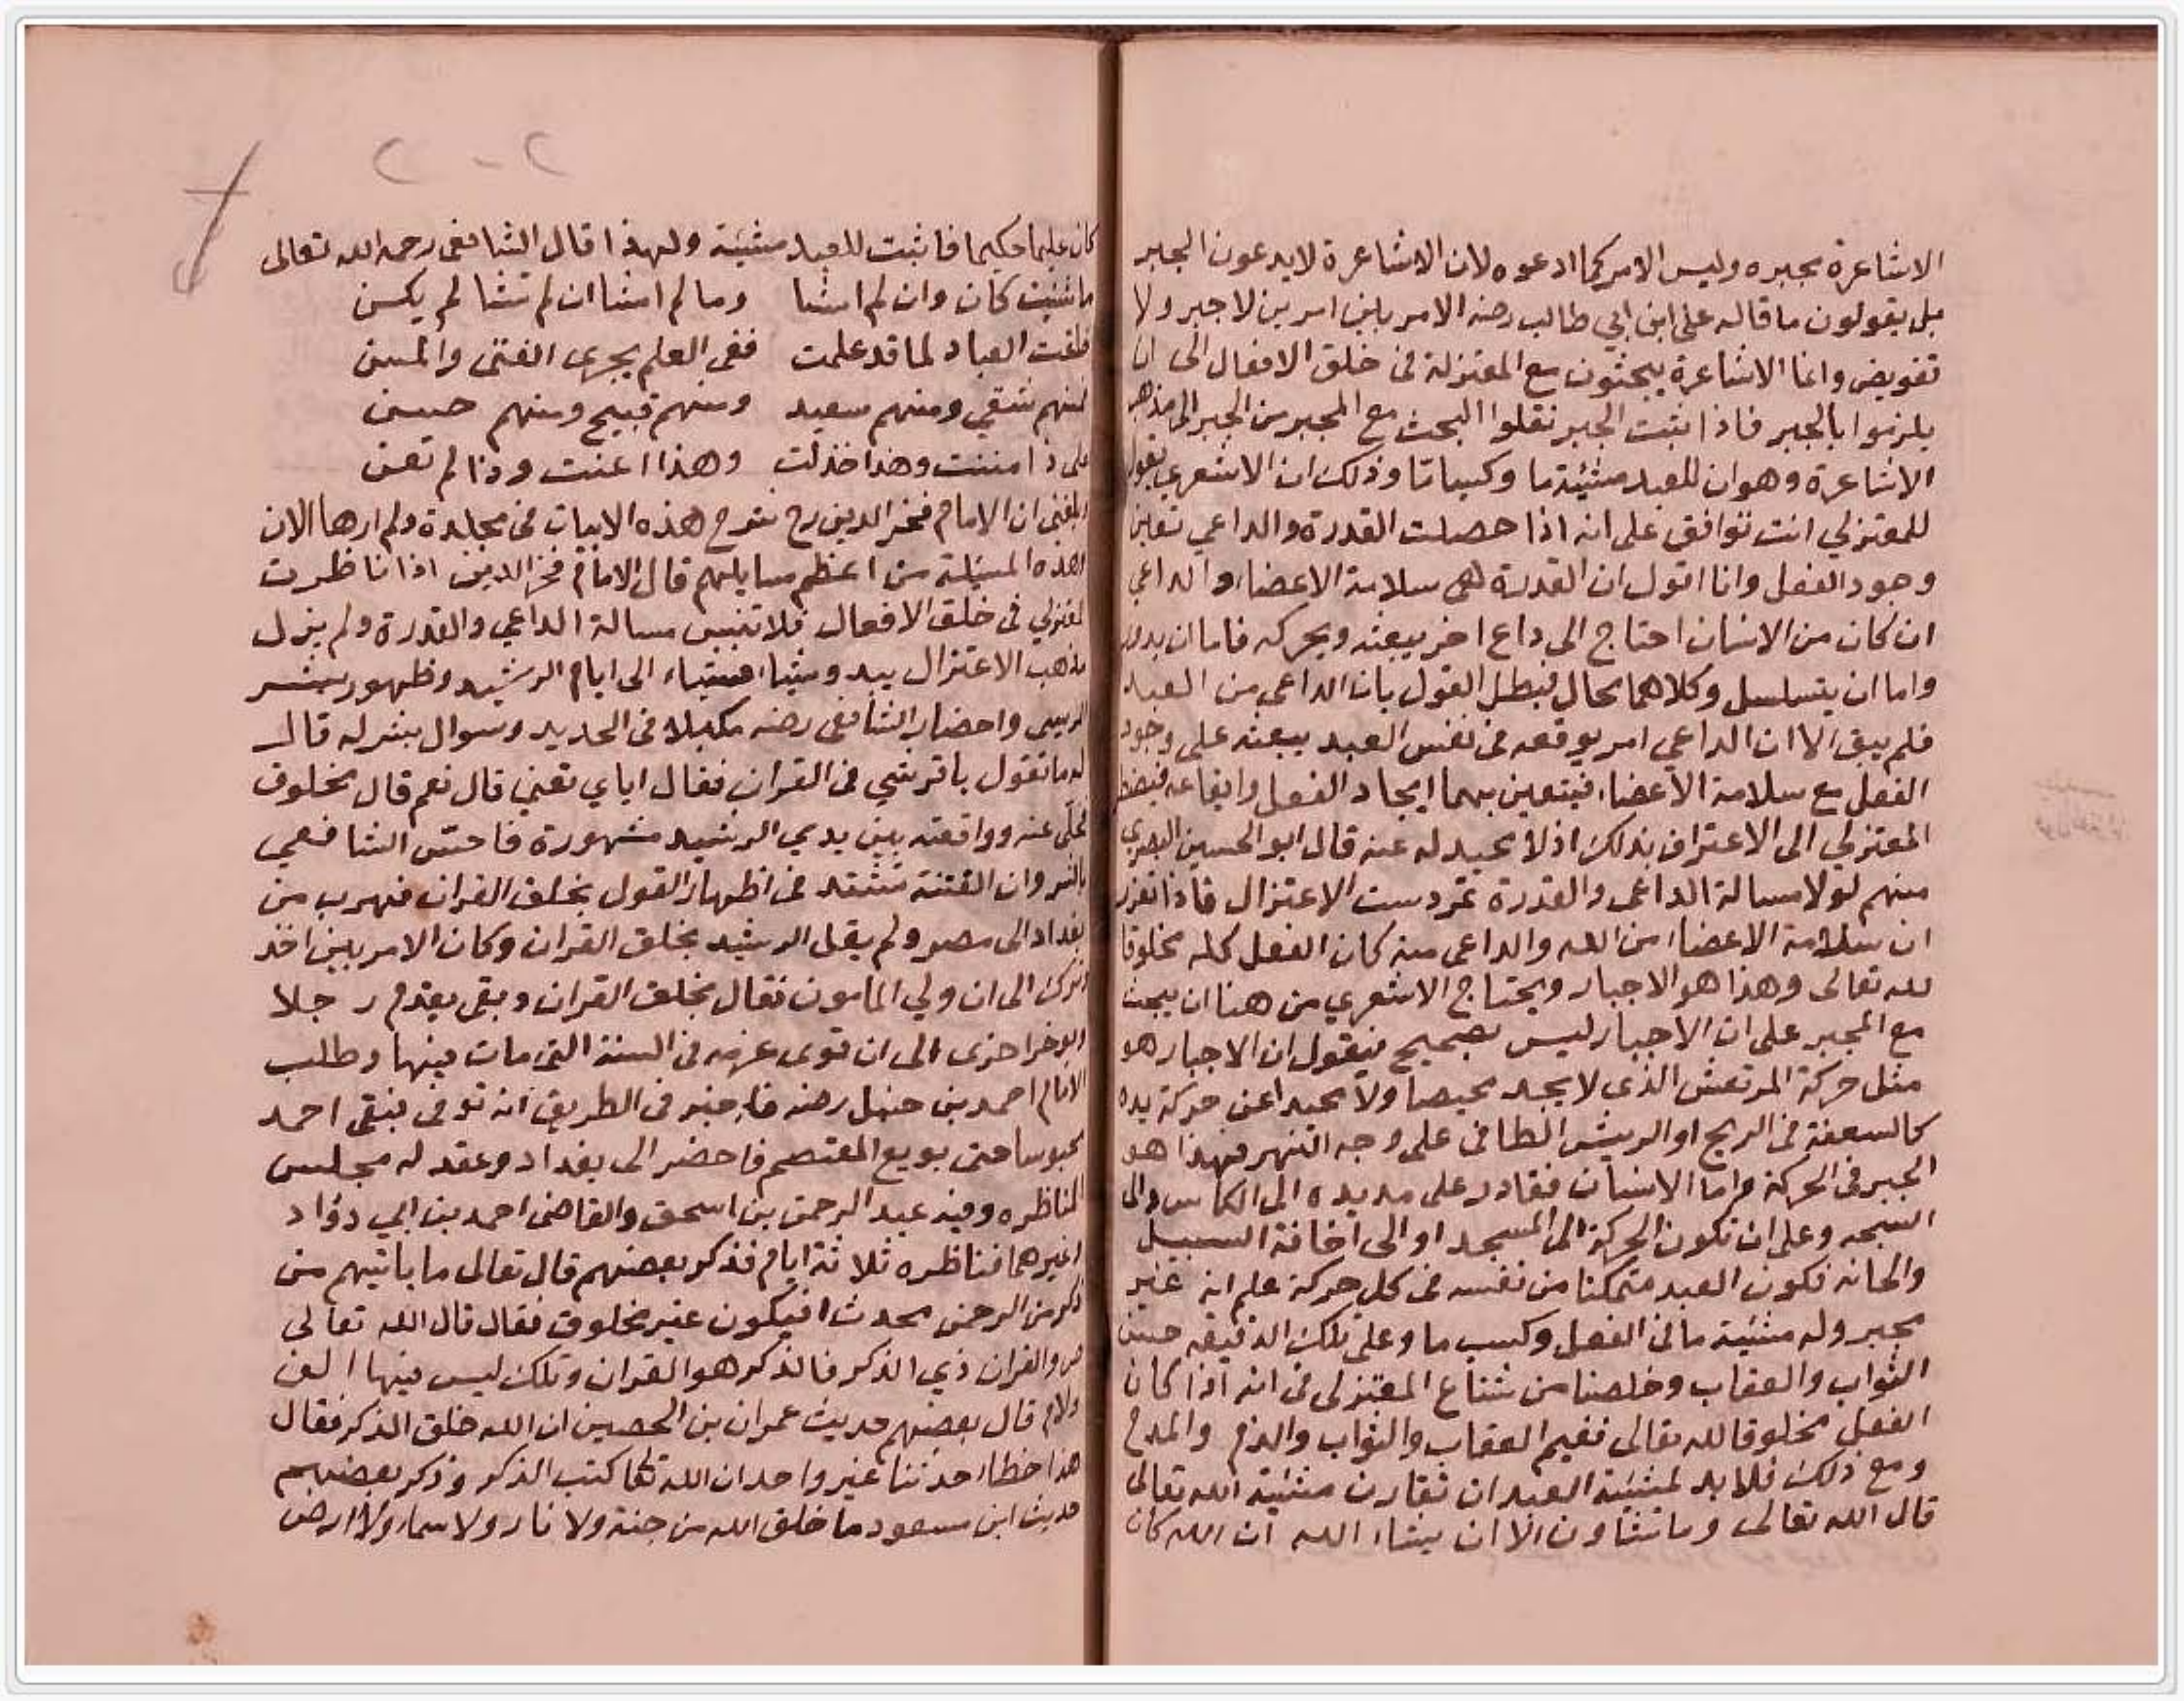 الاشاعرة بجبره وليس الامر كما ادعوه لان الاشاعرة لا يدعون الجبر
بل يقولون ما قاله على ابن ابي طالب رضه الامر بين امرين لا جبر ولا
تفويض وانما الاشاعرة يبحثون مع المعتزلة فى خلق الافعال الى ان
يلزموا بالجبر فاذا ثبت الجبر نقلوا البحث مع المجبر من الجبر الى مذهب
الاشاعرة وهو ان للعبد مشيئة ما وكسبا تا وذلك ان الاشعري يقول
للمعتزلي انت توافق على انه اذا حصلت القدرة والداعي تعين
وجود الفعل وانا اقول ان القدرة هى سلامة الاعضاء والداعي
ان كان من الانسان احتاج الى داع اخر يبعثه ويحركه فاما ان يدور
واما ان يتسلسل وكلاهما محال فبطل القول بان الداعى من العبد
فلم يبق الا ان الداعي امر يوقعه فى نفس العبد يبعثه على وجود
الفعل مع سلامة الاعضاء فيتعين بهما ايجاد الفعل وايقاعه فيضطر
المعتزلي الى الاعتراف بذلك اذ لا محيد له عنه قال ابو الحسين البصرى
منهم لولا مسالة الداعى والقدرة تمردست الاعتزال فاذا تقرر
ان سلامة الاعضاء من الله والداعى منه كان الفعل كله مخلوقا
لله تعالى وهذا هو الاجبار ويحتاج الاشعري من هنا ان يبحث
مع المجبر على ان الاجبار ليس بصحيح فيقول ان الاجبار هو
مثل حركة المرتعش الذى لا يجد محيصا ولا محيدا عن حركة يده
كالسعفة فى الريح او الريش الطافى على وجه النهر فهذا هو
الجبر فى الحركة واما الانسان فقادر على مد يده الى الكاس والى
السبحه وعلى ان تكون الحركة الى المسجد او الى اخافة السبيل
والحانه فكون العبد متمكنا من نفسه فى كل حركة علم انه غير
مجبر وله مشيئة ما فى الفعل وكسب ما وعلى تلك الدقيقه حسن
الثواب والعقاب وخلصنا من شناع المعتزلى فى انه اذا كان
الفعل مخلوقا لله تعالى ففيم العقاب والثواب والذم والمدح
ومع ذلك فلا بد لمشيئة العبد ان تقارن مشيئة الله تعالى
قال الله تعالى وما تشاون الا ان يشاء الله ان الله كان
كان عليما حكيما فاثبت للعبد مشيئة ولهذا قال الشافعى رحمه الله تعالى
ما شئت كان وان لم اشا وما لم اشا ان لم تشا لم يكن
خلقت العباد لما قد علمت ففى العلم يجرى الفتى والمسن
فمنهم شقي ومنهم سعيد ومنهم قبيح ومنهم حسن
على ذا مننت وهذا خذلت وهذا اعنت وذا لم تعن
وبلغنى ان الامام فخر الدين رح شرح هذه الابيات فى مجلدة ولم ارها الان
وهذه المسئلة من اعظم مسايلهم قال الامام فخر الدين اذا ناظرت
المعتزلي فى خلق الافعال فلا تنس مسالة الداعي والقدرة ولم يزل
مذهب الاعتزال يبدو شيئا فشيئا الى ايام الرشيد وظهور بشر
المريسى واحضار الشافعى رضه مكبلا فى الحديد وسوال بشر له قال
له ما تقول يا قرشي فى القران فقال اياي تعني قال نعم قال مخلوق
فخلى عنه وواقعته بين يدي الرشيد مشهورة فاحس الشافعي
بالشر وان الفتنة تشتد فى اظهار القول بخلق القران فهرب من
بغداد الى مصر ولم يقل الرشيد بخلق القران وكان الامر بين اخذ
وترك الى ان ولي المامون فقال بخلق القران وبقى يقدم رجلا
ويوخر اخرى الى ان قوى عزمه فى السنة التى مات فيها وطلب
الامام احمد بن حنبل رضه فاخبر فى الطريق انه توفى فبقى احمد
محبوسا حتى بويع المعتصم فاحضر الى بغداد وعقد له مجلس
المناظره وفيه عبد الرحمن بن اسحق والقاضى احمد بن ابي دؤاد
وغيرهما فناظره ثلاثة ايام فذكر بعضهم قال تعالى ما ياتيهم من
ذكر من الرحمن محدث افيكون غير مخلوق فقال قال الله تعالى
ص والقران ذي الذكر فالذكر هو القران وتلك ليس فيها الف
ولام قال بعضهم حديث عمران بن الحصين ان الله خلق الذكر فقال
هذا خطا حدثنا غير واحد ان الله تعالى كتب الذكر وذكر بعضهم
حديث ابن مسعود ما خلق الله من جنة ولا نار ولا سماء ولا ارض